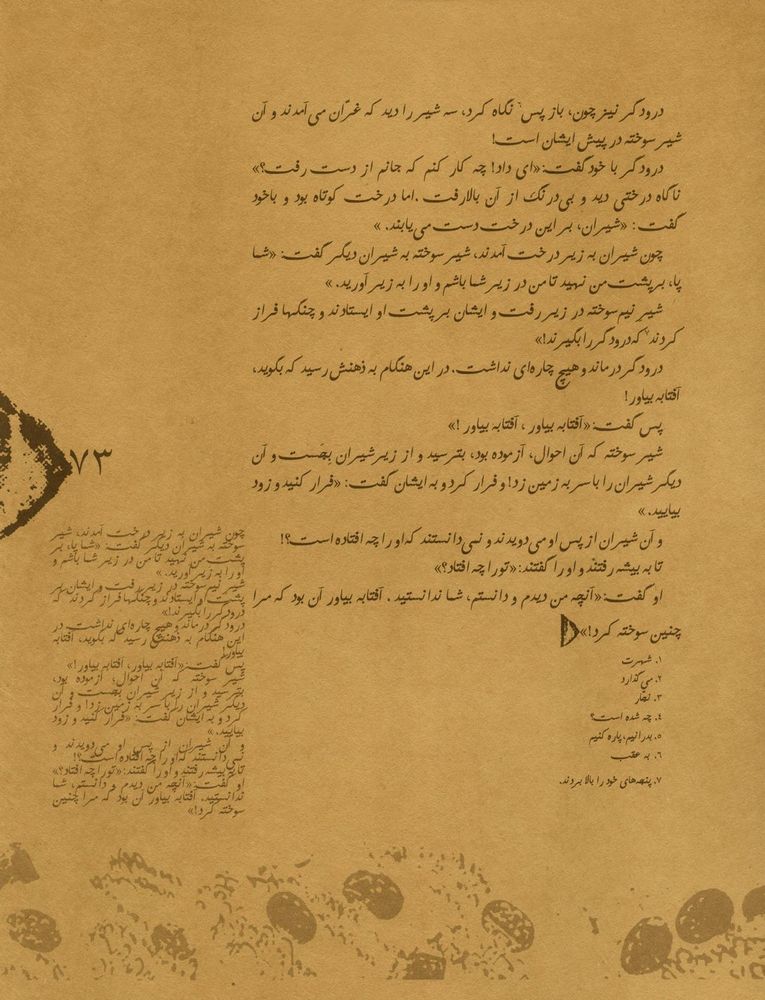 درودگر نیز چون، باز پس۶ نگاه کرد، سه شیر را دید که غرّان می‌آمدند و آن
شیر سوخته در پیش ایشان است!
درودگر با خود گفت: «ای داد! چه کار کنم که جانم از دست رفت؟»
ناگاه درختی دید و بی‌درنگ از آن بالا رفت. اما درخت کوتاه بود و با خود
گفت: «شیران، بر این درخت دست می‌یابند.»
چون شیران به زیر درخت آمدند، شیر سوخته به شیران دیگر گفت: «شما
پا، بر پشت من نهید تا من در زیر شما باشم و او را به زیر آورید.»
شیر نیم‌سوخته در زیر رفت و ایشان بر پشت او ایستادند و چنگها فراز
کردند۷ که درودگر را بگیرند!»
درودگر درماند و هیچ چاره‌ای نداشت. در این هنگام به ذهنش رسید که بگوید،
آفتابه بیاور!
پس گفت: «آفتابه بیاور، آفتابه بیاور!»
شیر سوخته که آن احوال، آزموده بود، بترسید و از زیر شیران بجست و آن
دیگر شیران را با سر به زمین زد! و فرار کرد و به ایشان گفت: «فرار کنید و زود
بیایید.»
و آن شیران از پس او می‌دویدند و نمی‌دانستند که او را چه افتاده است؟!
تا به بیشه رفتند و او را گفتند: «تو را چه افتاد؟»
او گفت: «آنچه من دیدم و دانستم، شما ندانستید. آفتابه بیاور آن بود که مرا
چنین سوخته کرد!»
۱. شهرت
۲. می‌گذارد
۳. نجّار
۴. چه شده است؟
۵. بدرانیم، پاره کنیم
۶. به عقب
۷. پنجه‌های خود را بالا بردند.
۷۳
چون شیران به زیر درخت آمدند، شیر
سوخته به شیران دیگر گفت: «شما پا، بر
پشت من نهید تا من در زیر شما باشم و
او را به زیر آورید.»
شیر نیم‌سوخته در زیر رفت و ایشان بر
پشت او ایستادند و چنگها فراز کردند که
درودگر را بگیرند!»
درودگر درماند و هیچ چاره‌ای نداشت. در
این هنگام به ذهنش رسید که بگوید، آفتابه
بیاور!
پس گفت: «آفتابه بیاور، آفتابه بیاور!»
شیر سوخته که آن احوال، آزموده بود،
بترسید و از زیر شیران بجست و آن
دیگر شیران را با سر به زمین زد! و فرار
کرد و به ایشان گفت: «فرار کنید و زود
بیایید.»
و آن شیران از پس او می‌دویدند و
نمی‌دانستند که او را چه افتاده است؟!
تا به بیشه رفتند و او را گفتند: «تو را چه افتاد؟»
او گفت: «آنچه من دیدم و دانستم، شما
ندانستید. آفتابه بیاور آن بود که مرا چنین
سوخته کرد!»